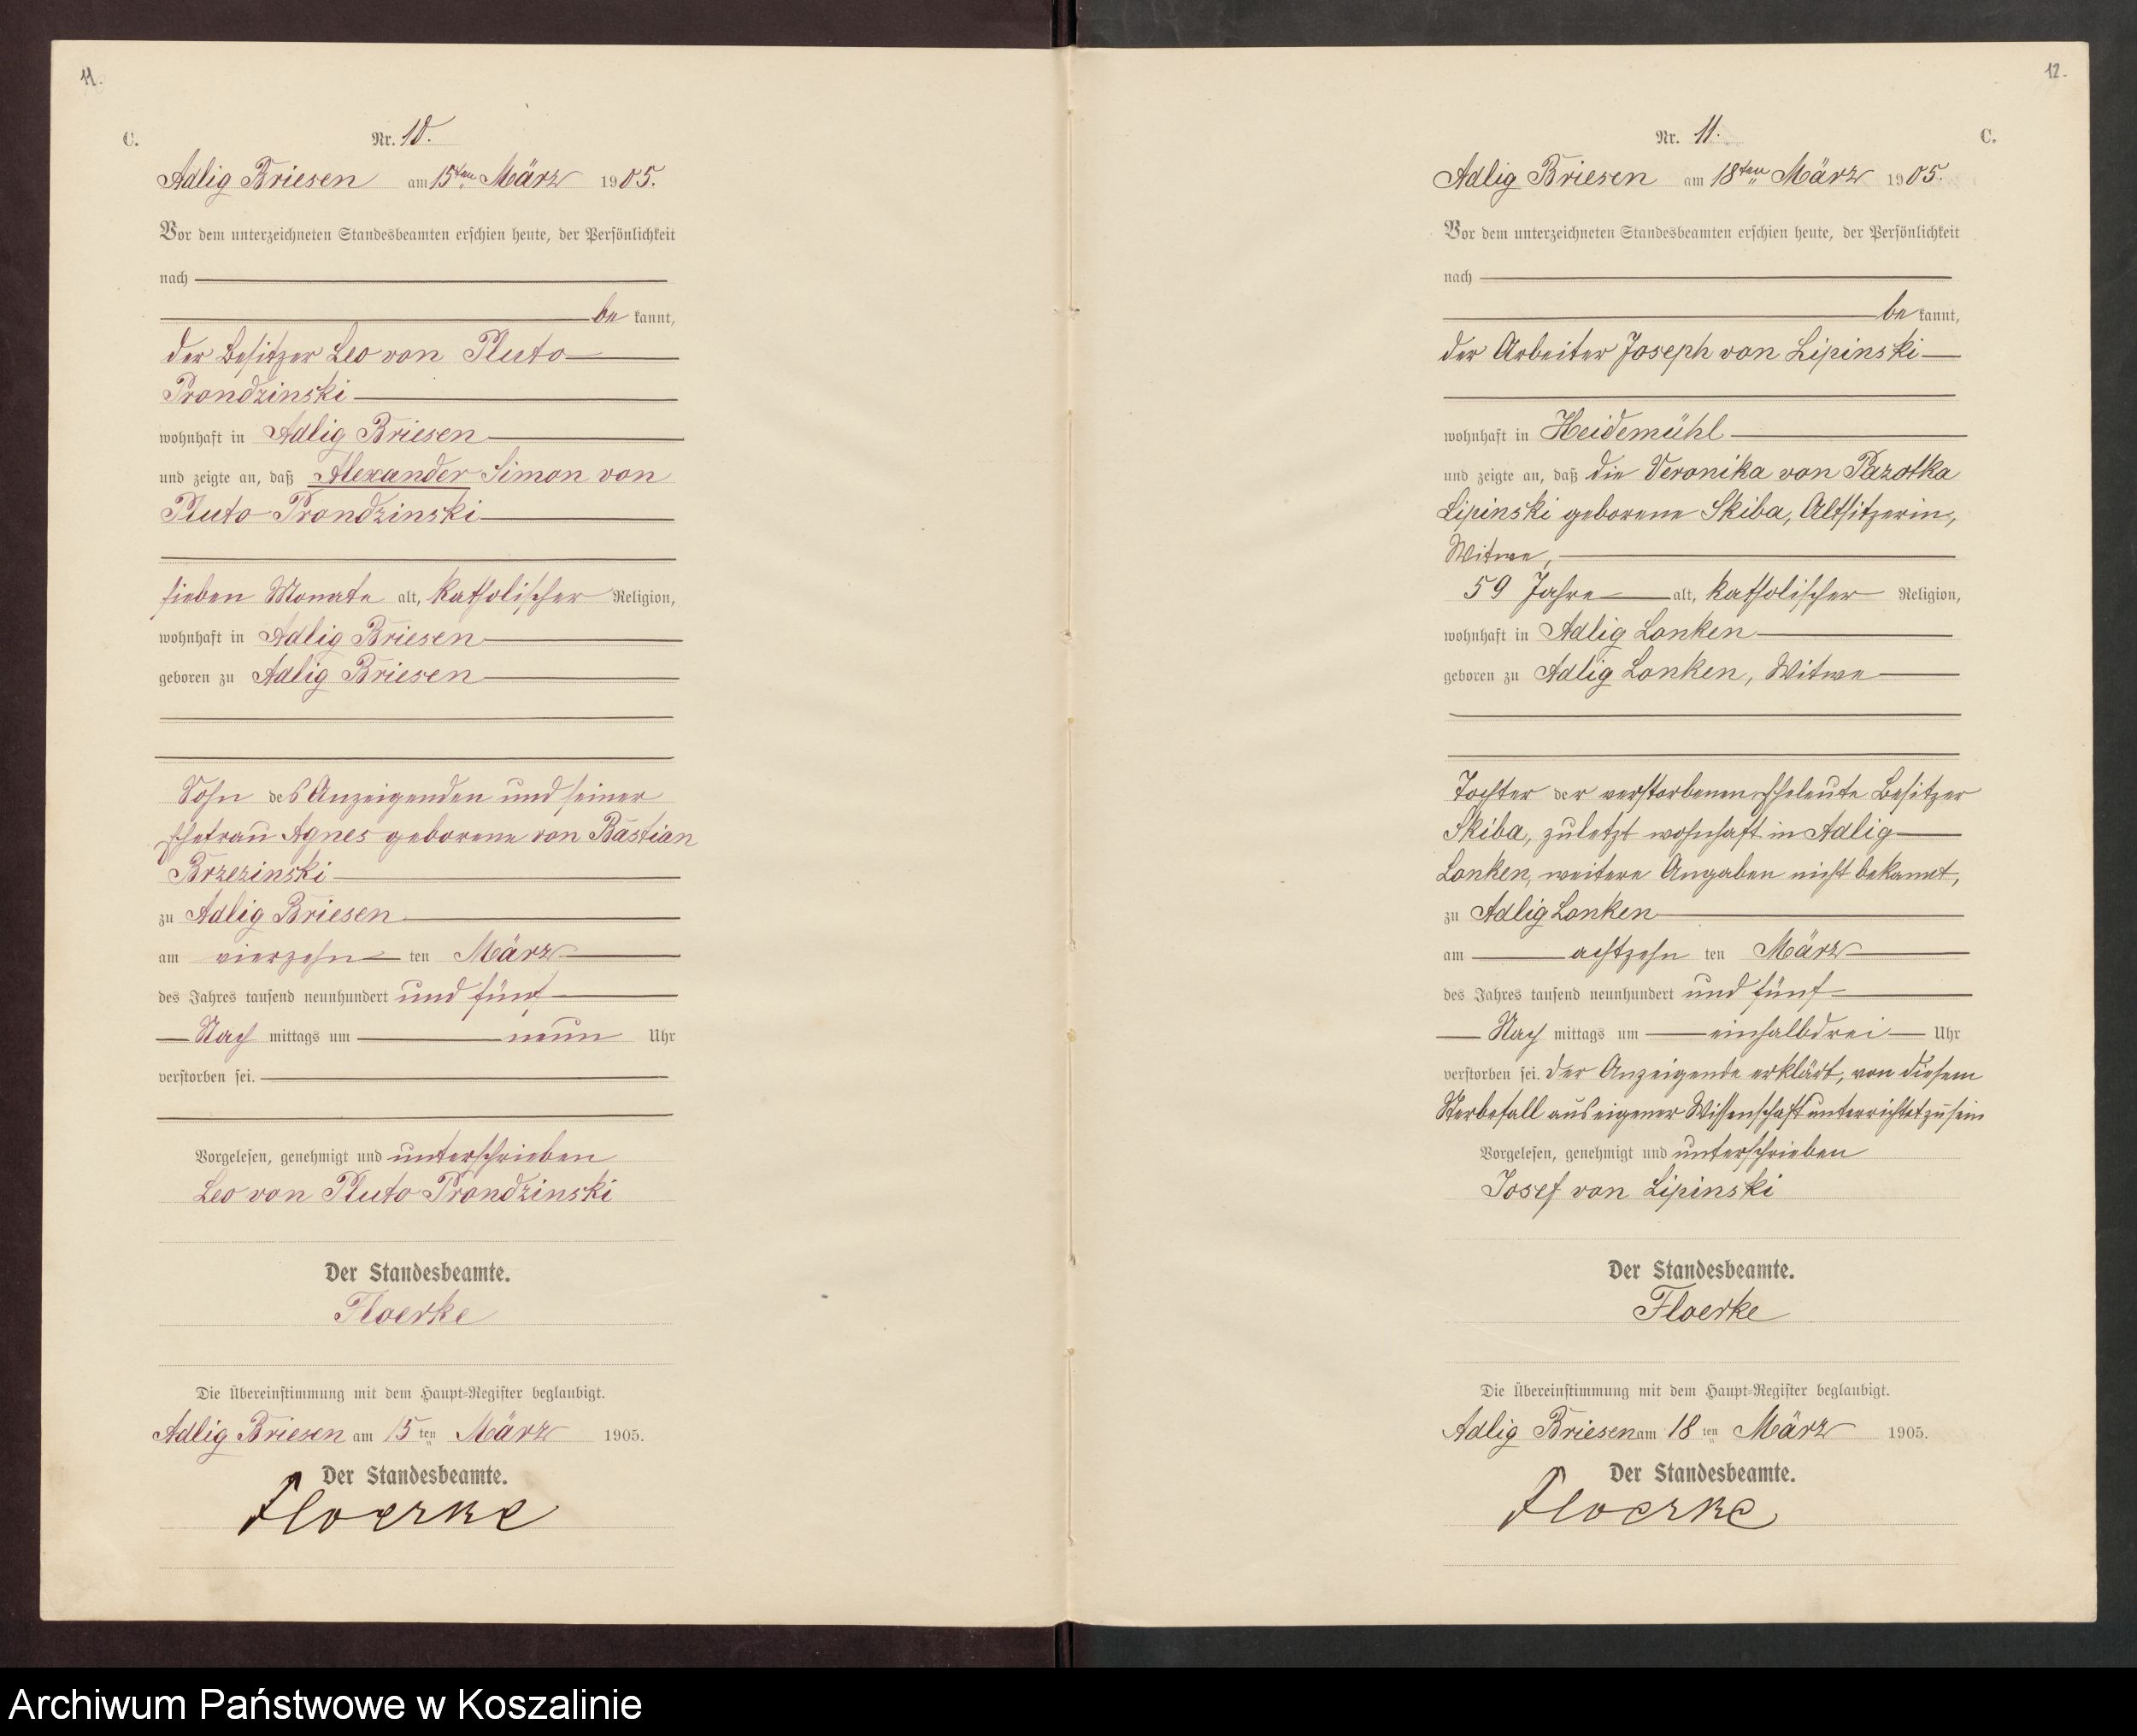 11.
C.
Nr. 10.
Adlig Briesen am 15ten März 1905.
Vor dem unterzeichneten Standesbeamten erschien heute, der Persönlichkeit
nach
be kannt,
der Besitzer Leo von Pluto
Prondzinski
wohnhaft in Adlig Briesen
und zeigte an, daß Alexander Simon von
Pluto Prondzinski
sieben Monate alt, katholischer Religion,
wohnhaft in Adlig Briesen
geboren zu Adlig Briesen
Sohn des Anzeigenden und seiner
Ehefrau Agnes geborene von Bastian
Brzezinski
zu Adlig Briesen
am vierzehn ten März
des Jahres tausend neunhundert und fünf
Nach mittags um neun Uhr
verstorben sei.
Vorgelesen, genehmigt und unterschrieben
Leo von Pluto Prondzinski
Der Standesbeamte.
Floerke
Die Übereinstimmung mit dem Haupt-Register beglaubigt.
Adlig Briesen am 15 ten März 1905.
Der Standesbeamte.
Floerke
12.
Nr. 11.
C.
Adlig Briesen am 18ten März 1905.
Vor dem unterzeichneten Standesbeamten erschien heute, der Persönlichkeit
nach
be kannt,
der Arbeiter Joseph von Lipinski
wohnhaft in Heidemühl
und zeigte an, daß die Veronika von Pazotka
Lipinski geborene Skiba, Altsitzerin,
Witwe,
59 Jahre alt, katholischer Religion,
wohnhaft in Adlig Lonken
geboren zu Adlig Lonken, Witwe
Tochter der verstorbenen Eheleute Besitzer
Skiba, zuletzt wohnhaft in Adlig
Lonken, weitere Angaben nicht bekannt,
zu Adlig Lonken
am achtzehn ten März
des Jahres tausend neunhundert und fünf
Nach mittags um einhalbdrei Uhr
verstorben sei. Der Anzeigende erklärt, von diesem
Sterbefall aus eigener Wissenschaft unterrichtet zu sein
Vorgelesen, genehmigt und unterschrieben
Josef von Lipinski
Der Standesbeamte.
Floerke
Die Übereinstimmung mit dem Haupt-Register beglaubigt.
Adlig Briesen am 18 ten März 1905.
Der Standesbeamte.
Floerke
Archiwum Państwowe w Koszalinie